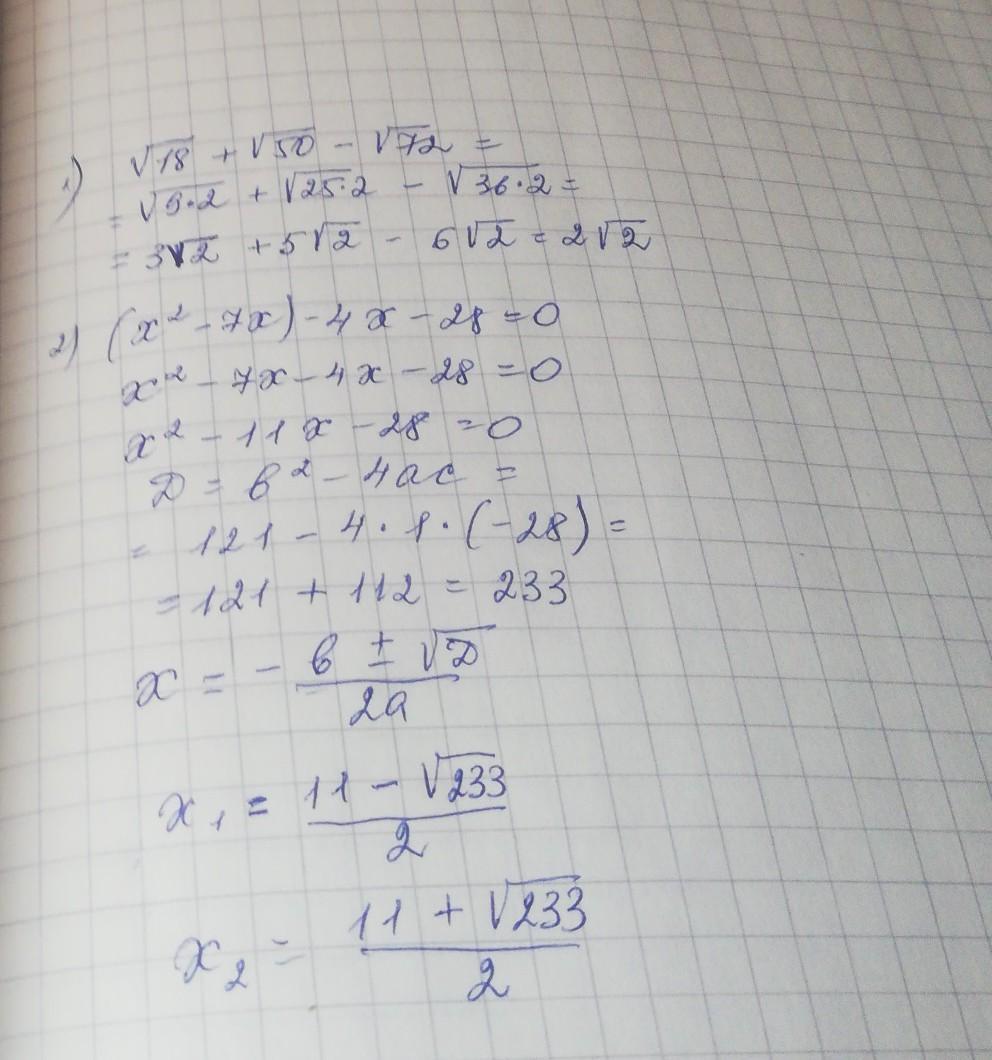 1) √18 + √50 - √72 =
= √9·2 + √25·2 - √36·2 =
= 3√2 + 5√2 - 6√2 = 2√2
2) (x² - 7x) - 4x - 28 = 0
x² - 7x - 4x - 28 = 0
x² - 11x - 28 = 0
D = b² - 4ac =
= 121 - 4 · 1 · (-28) =
= 121 + 112 = 233
x = - b ± √D / 2a
x₁ = 11 - √233 / 2
x₂ = 11 + √233 / 2